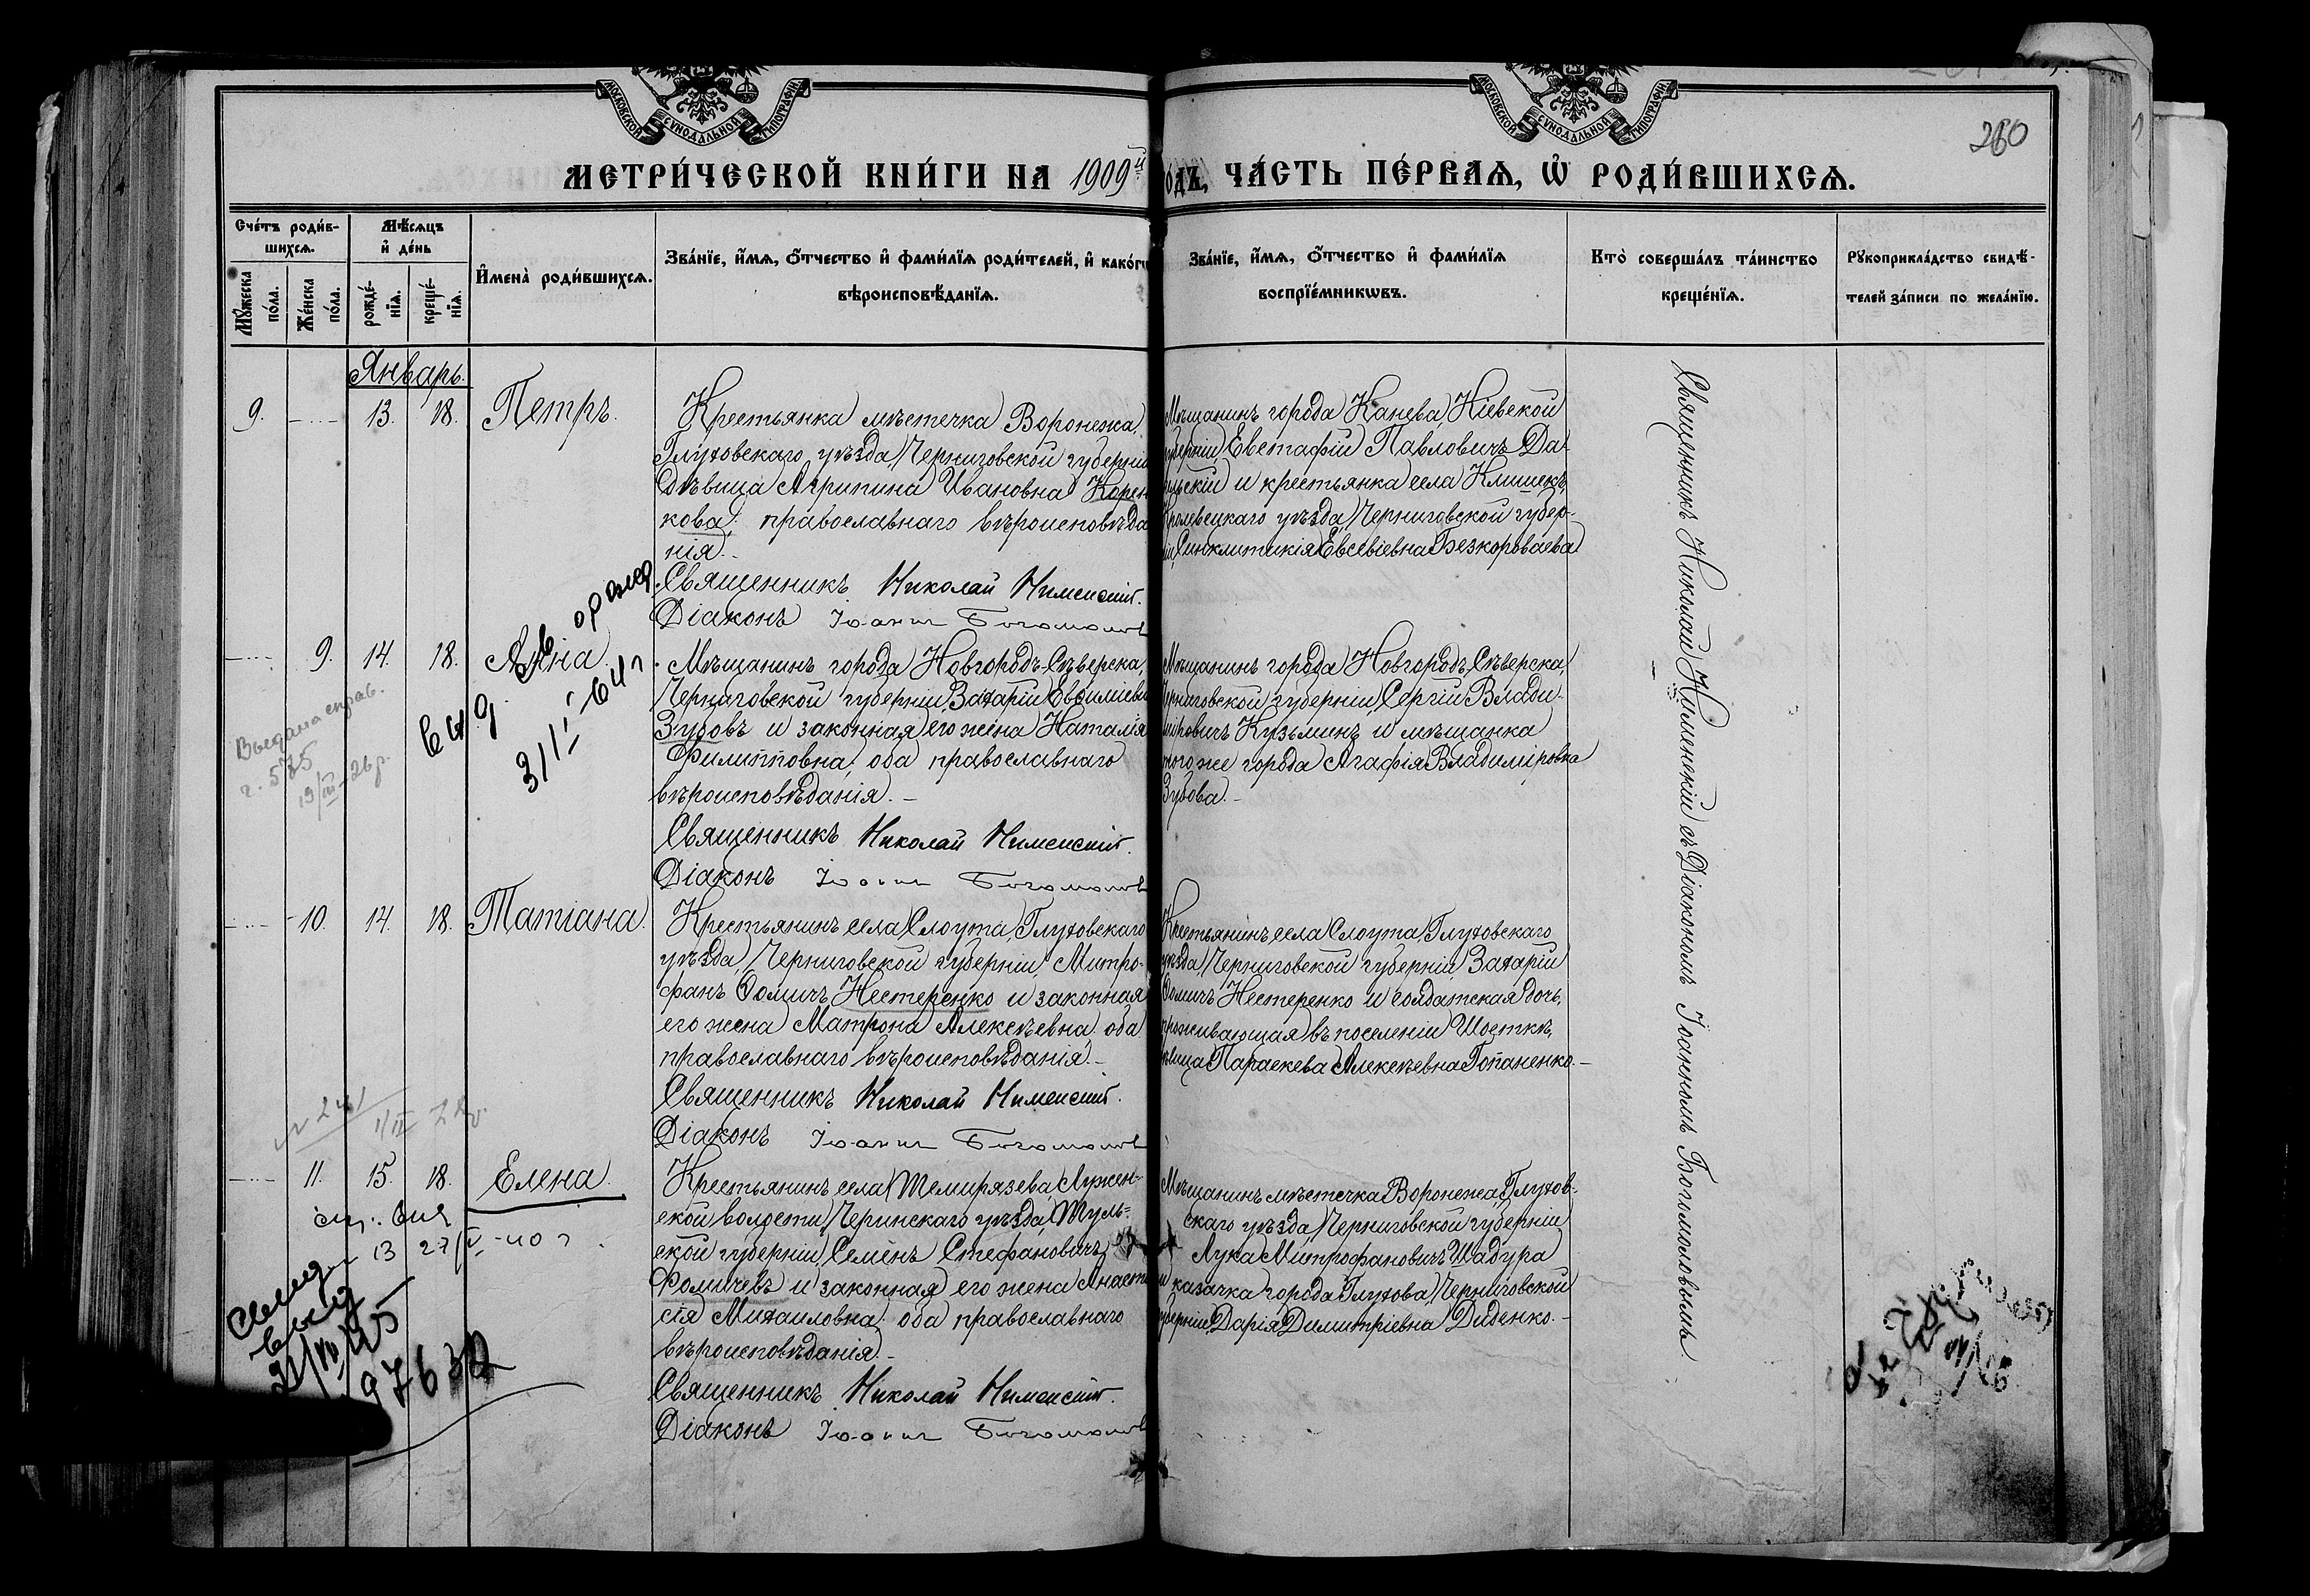 МОСКОВСКОЙ СѴНОДАЛЬНОЙ ТИПОГРАФІИ
МОСКОВСКОЙ СѴНОДАЛЬНОЙ ТИПОГРАФІИ
260
МЕТРИ́ЧЕСКОЙ КНИ́ГИ НА 1909й
ѡ́дъ, ЧА́СТЬ ПЕ́РВАѦ, Ѡ҆ РОДИ́ВШИХСѦ.
Сче́тъ роди́в-
шихсѧ.
Мꙋ́жеска
по́ла.
Же́нска
по́ла.
Мѣ́сѧцъ
и҆ де́нь
рожде́-
нїѧ.
креще́-
нїѧ.
И҆мена̀ роди́вшихсѧ.
Зва́нїе, и҆́мѧ, ѻ҆́тчество и҆ фами́лїѧ роди́телей, и҆ како́гѡ
вѣроисповѣ́данїѧ.
Зва́нїе, и҆́мѧ, ѻ҆́тчество и҆ фами́лїѧ
воспрїе́мникѡвъ.
Кто̀ соверша́лъ та́инство
креще́нїѧ.
Рꙋкоприкла́дство свидѣ́-
телей за́писи по жела́нїю.
Январь.
9. 13. 18. Петръ.
Крестьянка мѣстечка Воронежа,
Глуховскаго уѣзда, Черниговской губерніи
дѣвица Агрипина Ивановна Корен
кова, православнаго вѣроисповѣда
нія.
Священникъ Николай Нименскій.
Діаконъ Іоаннъ Богомоловъ
Мѣщанинъ города Канева, Кіевской
губерніи Евстафій Павловичъ Да-
и крестьянка села Клишекъ,
Кролевецкаго уѣзда, Черниговской губер-
ніи, Синклитикія Евсевіевна Безкороваева
9. 14. 18. Анна.
Мѣщанинъ города Новгородъ-Сѣверска,
Черниговской губерніи Захарій Евѳиміевъ
Зубовъ и законная его жена Наталія
Филипповна, оба православнаго
вѣроисповѣданія. -
Священникъ Николай Нименскій.
Діаконъ Іоаннъ Богомоловъ
Мѣщанинъ города Новгородъ-Сѣверска,
Черниговской губерніи, Сергій Влади-
міровичъ Кузьминъ и мѣщанка
того же города Агафія Владиміровна
Зубова. -
Выдана справ.
19/III-26 р.
10. 14. 18. Татіана.
Крестьянинъ села Слоута, Глуховскаго
уѣзда, Черниговской губерніи, Митро-
фанъ Ѳомичъ Нестеренко и законная
его жена Матрона Алексѣевна, оба
православнаго вѣроисповѣданія. -
Священникъ Николай Нименскій.
Діаконъ Іоаннъ Богомоловъ
Крестьянинъ села Слоута, Глуховскаго
уѣзда, Черниговской губерніи, Захарій
Ѳомичъ Нестеренко и солдатская дочь,
проживающая въ поселеніи Шосткѣ,
дѣвица Параскева Алексѣевна Гопаненко. -
11. 15. 18. Елена.
Крестьянинъ села Темирязева, Лужен-
ской волости, Чернскаго уѣзда, Туль-
ской губерніи, Семенъ Стефановичъ
Фомичевъ и законная его жена Анаста
сія Михаиловна, оба православнаго
вѣроисповѣданія. -
Священникъ Николай Нименскій.
Діаконъ Іоаннъ Богомоловъ
Мѣщанинъ мѣстечка Воронежа, Глухов-
скаго уѣзда, Черниговской губерніи
Лука Митрофановичъ Шадура
и казачка города Глухова, Черниговской
губерніи, Дарія Димитріевна Диденко. -
Священникъ Николай Нименскій съ Діакономъ Іоанномъ Богомоловымъ